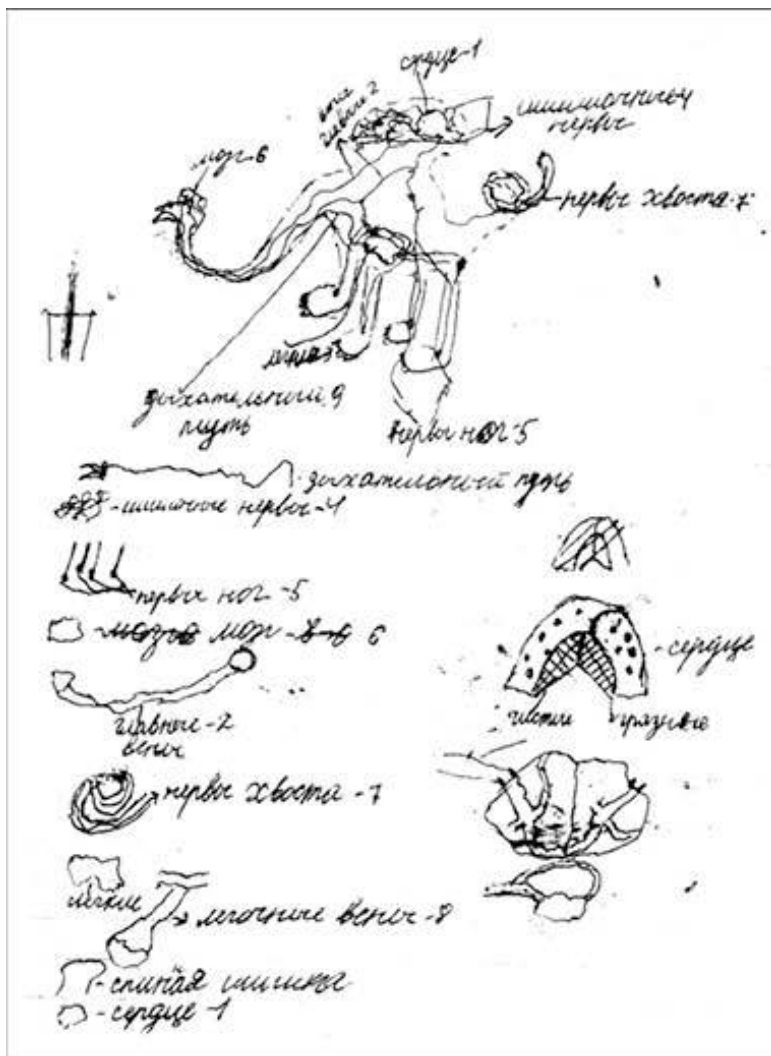 сердце-1
вена
главные 2
шишочные 4
нервы
мозг-6
нервы хвоста-7
дыхательный 9
путь
нервы ног-5
дыхательный путь
шишочные нервы-4
нервы ног-5
мозг
6
-сердце
чистые
грязные
главные-2
вены
нервы хвоста-7
лёгкие
легочные вены-8
спиная шишка
сердце-1